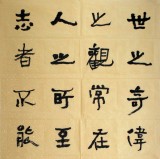 世之奇偉
之觀常在
人之所至
志者不能